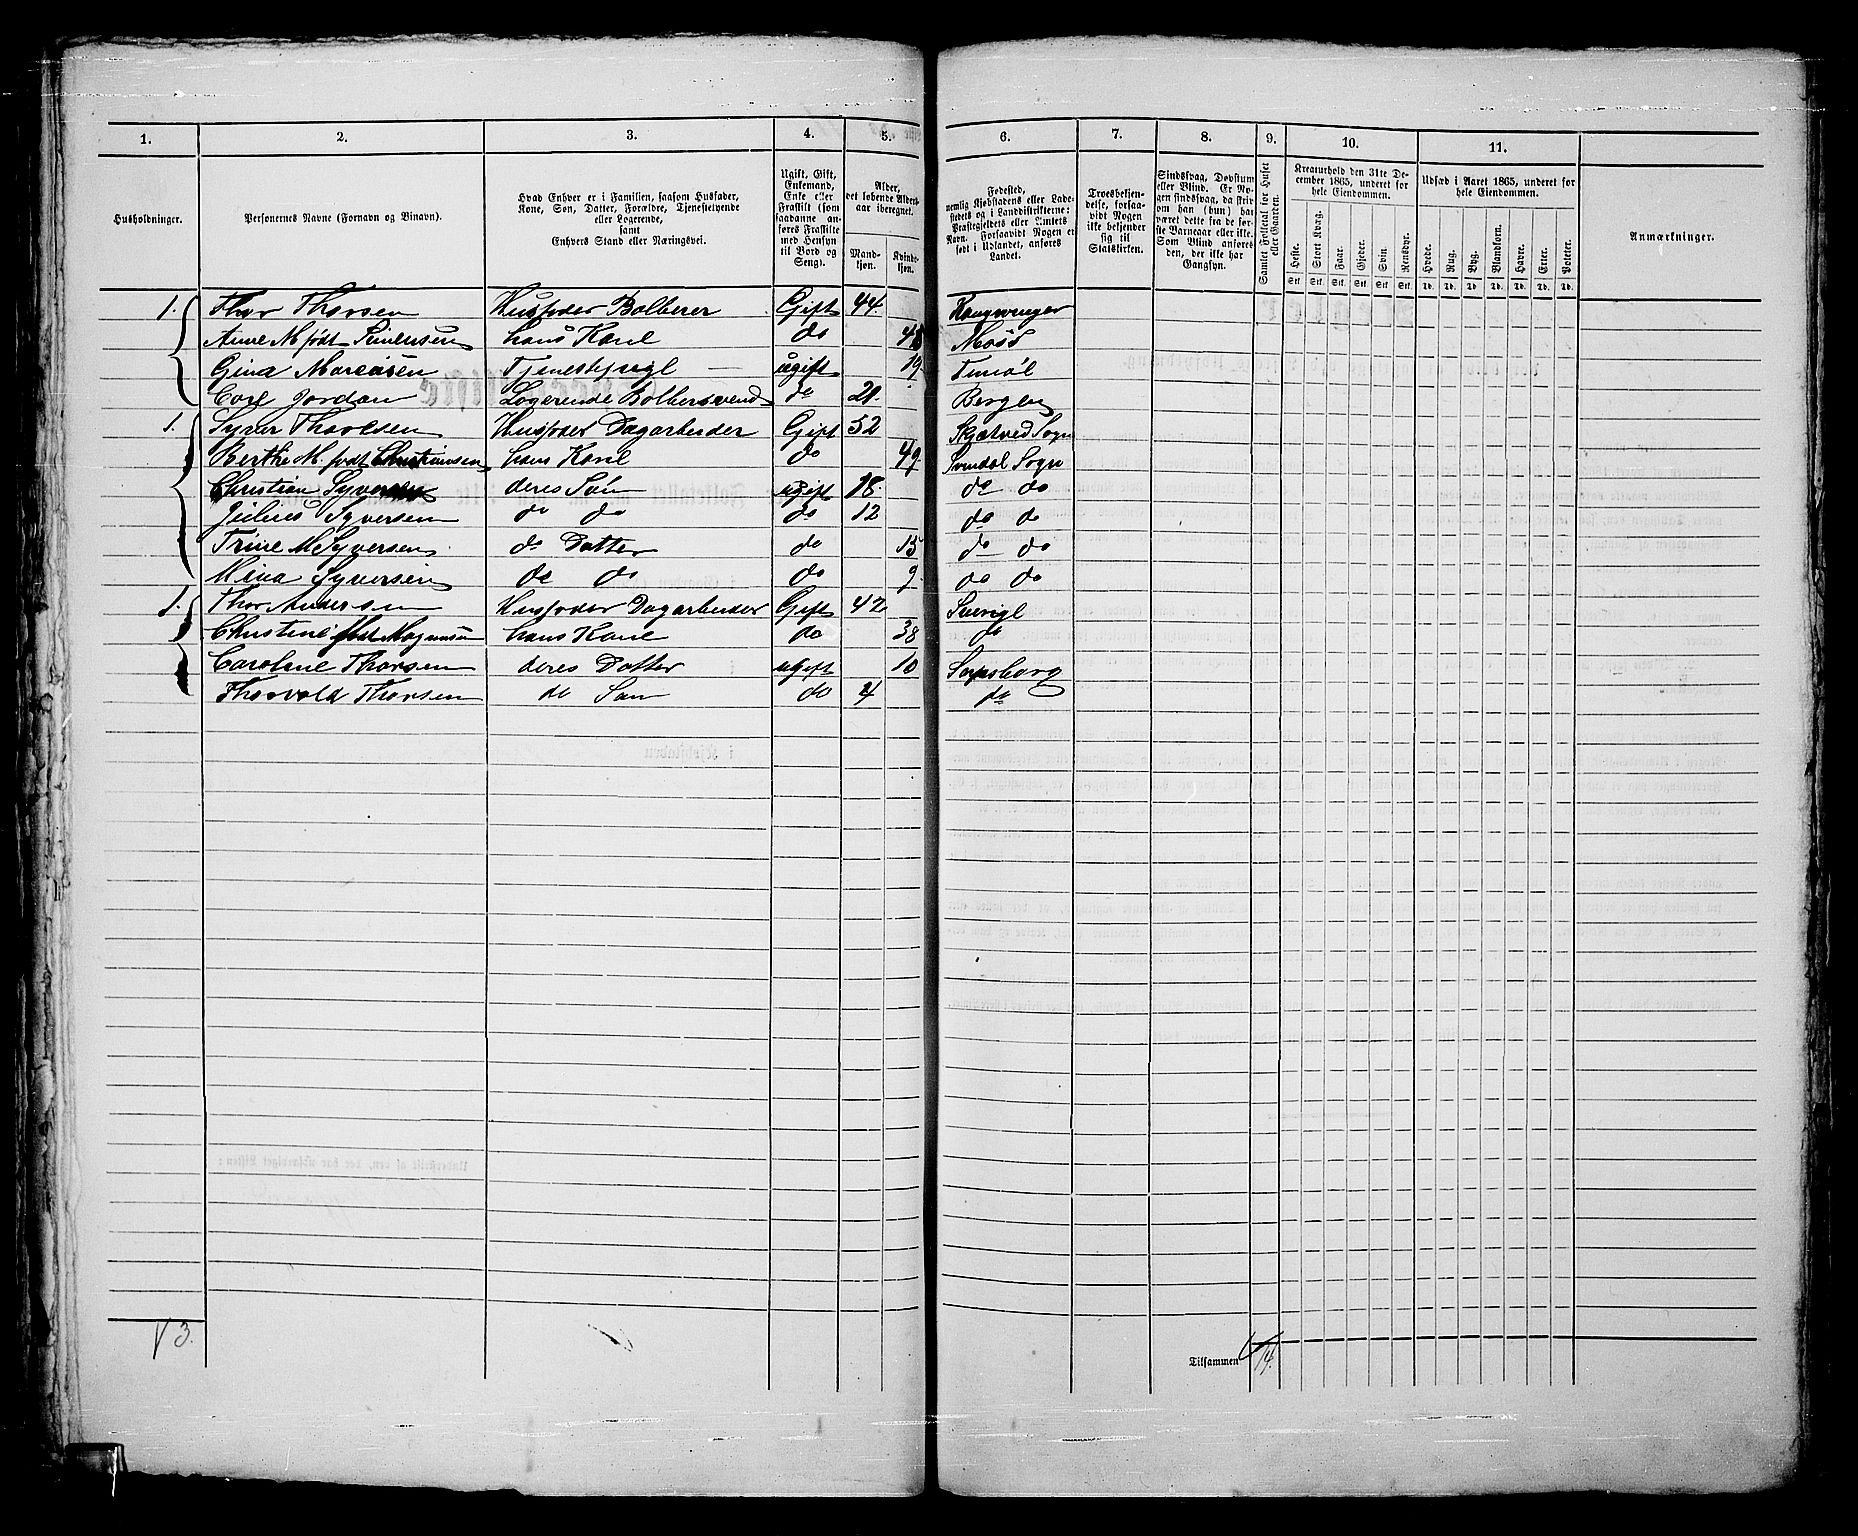 1. 2. 3. 4. 5. 6. 7. 8. 9. 10. 11.
Husholdninger.
Personernes Navne (Fornavn og Binavn).
Hvad Enhver er i Familien, saasom Husfader,
Kone, Søn, Datter, Forældre, Tjenestetyende
eller Logerende,
samt
Enhvers Stand eller Næringsvei.
Ugift, Gift,
Enkemand,
Enke eller
Fraskilt (som
saadanne an-
føres Fraskilte
med Hensyn
til Bord og
Seng).
Alder,
det løbende Alders-
aar iberegnet.
Mand-
kjøn.
Kvinde-
kjøn.
Fødested,
nemlig Kjøbstadens eller Lade-
stedets og i Landdistrikterne:
Præstegjeldets eller Amtets
Navn. Forsaavidt Nogen er
født i Udlandet, anføres
Landet.
Troesbekjen-
delse, forsaa-
vidt Nogen
ikke bekjender
sig til
Statskirken.
Sindssvag, Døvstum
eller Blind. Er No-
gen sindssvag, da skri-
ves om han (hun) har
været dette fra de før-
ste Barneaar eller ikke.
Som Blind anføres
den, der ikke har
Gangsyn.
Samlet Folketal for Huset
eller Gaarden.
Kreaturhold den 31te De-
cember 1865, underet for
hele Eiendommen.
Heste. Stort Kvæg. Faar. Gjeder. Svin. Rensdyr.
Stk. Stk. Stk. Stk. Stk. Stk.
Udsæd i Aaret 1865, underet for
hele Eiendommen.
Hvede. Rug. Byg. Blandkorn. Havre. Erter. Poteter.
Td. Td. Td. Td. Td. Td. Td.
Anmærkninger.
1. Thor Thorsen Husfader Bolberer Gift 44 Kongsvinger
Anne M født hans Kone do Moss
Gina Tjenestepige ugift 19
Carl Jordan Logerende Bolbersvend do 21 Bergen
1. Syver Husfader Dagarbeider Gift 52 Skjætved Sogn
Berthe M. født Christiansen hans Kone do 49 Svindal Sogn
Christian Syversen deres Søn ugift 18 do do
Julius Syversen do do do 12 do do
Trine M Syversen do Datter do 15 do do
Mina Syversen do do do 9 do do
1. Thor Andersen Husfader Dagarbeider Gift 42 Sverige
Christine født Magnusen hans Kone do 38 do
Caroline Thorsen deres Datter ugift 10 Sarpsborg
Thorvald Thorsen do Søn do 4 do
3.
Tilsammen 14